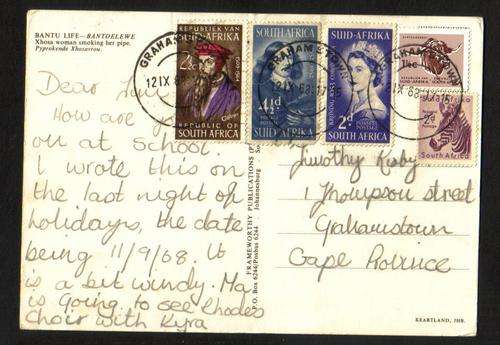 BANTU LIFE—BANTOELEWE
Xhosa woman smoking her pipe.
Pyprokende Xhosavrou.
Dear
How are
on at School.
I wrote this on
the last night of
holidays, the date
being 11/9/68. It
is a bit windy. Ma
is going to see Rhodes
Choir with Kyra
FRAMEWORTHY PUBLICATIONS
P.O. Box 6244/Posbus 6244
Johannesburg
REPUBLIEK VAN
SUID-AFRIKA
2½c
Calvyn
REPUBLIC OF
SOUTH AFRICA
SOUTH AFRICA
4½d
POSTAGE
SUID-AFRIKA
SUID-AFRIKA
2d
POSSEEL
POSTAGE
SOUTH AFRICA
1½c
½d
South Africa
GRAHAMSTOWN
12 IX 68
GRAHAMSTOWN
12 IX 68
GRAHAMSTOWN
IX 68
Timothy
1 Thompson street
Grahamstown
Cape Province
KEARTLAND, JHB.